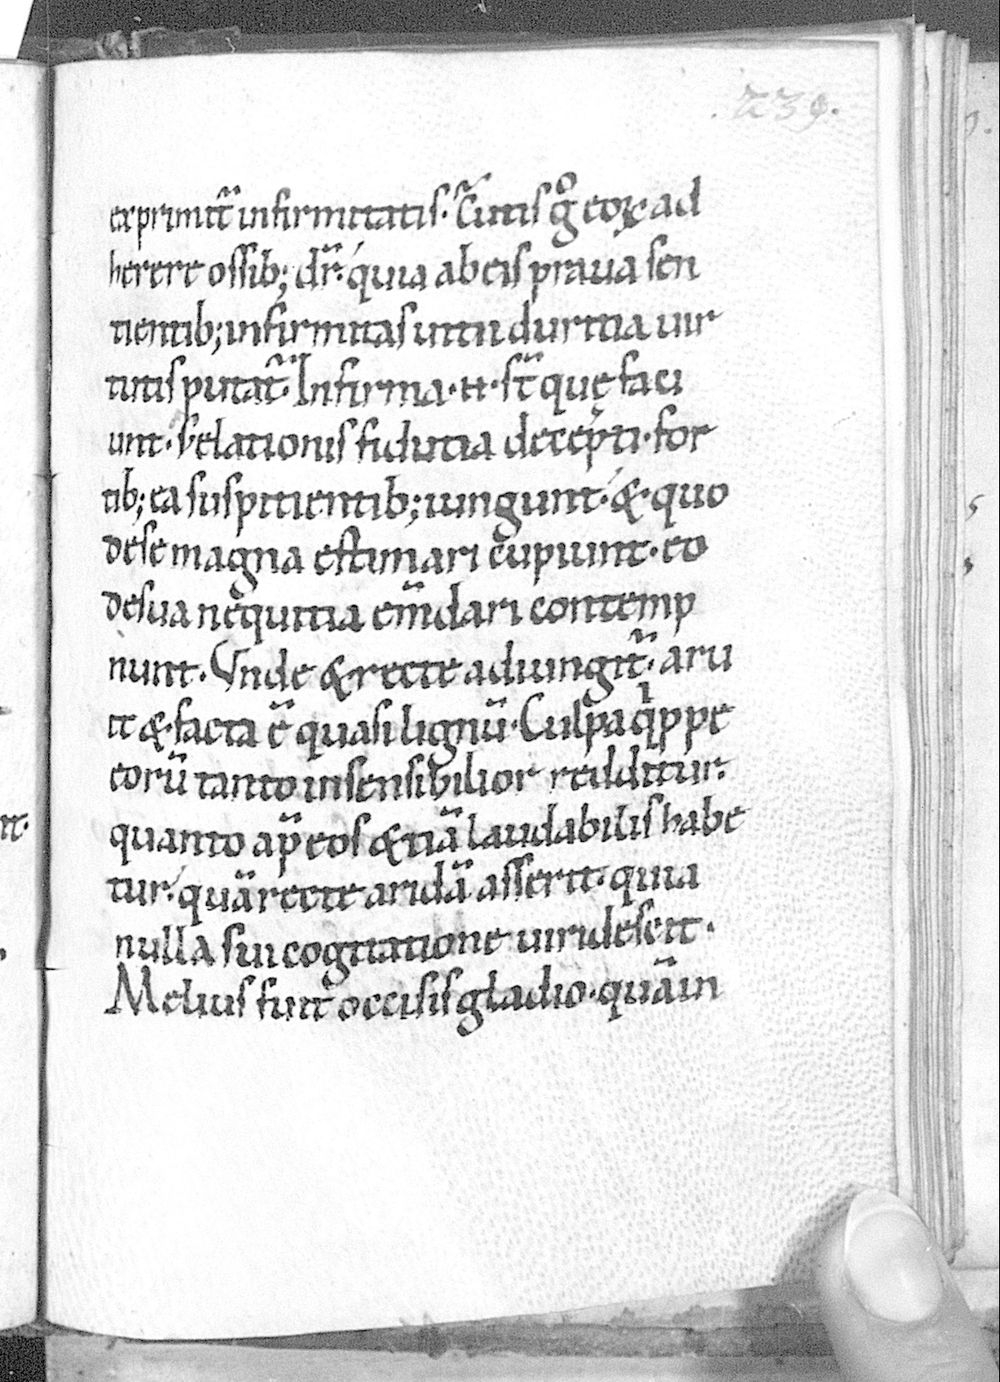 239.
exprimit᷑ infirmitatis. Cutis gͦ eoꝝ ad
herere ossib; dr̃. quia ab eis praua sen
tientib; infirmitas intu duritia uir
tutis putat᷑. Infirma .ɫɫ. st̃ quę faci
unt. s; elationis fidutia decepti. for
tib; ea suspitientib; iungunt. & quo
de se magna estimari cupiunt. eo
de sua nequitia em̃dari contemp
nunt. Vnde & recte adiungit᷑. aru
it & facta ẽ quasi lignũ. Culpa q̍ppe
eorũ tanto insensibilior redditur.
quanto ap̃ eos & tiã laudabilis habe
tur. quã recte aridã asserit. quia
nulla sui cogitatione uiridescit.
Melius fuit occisis gladio. quã in